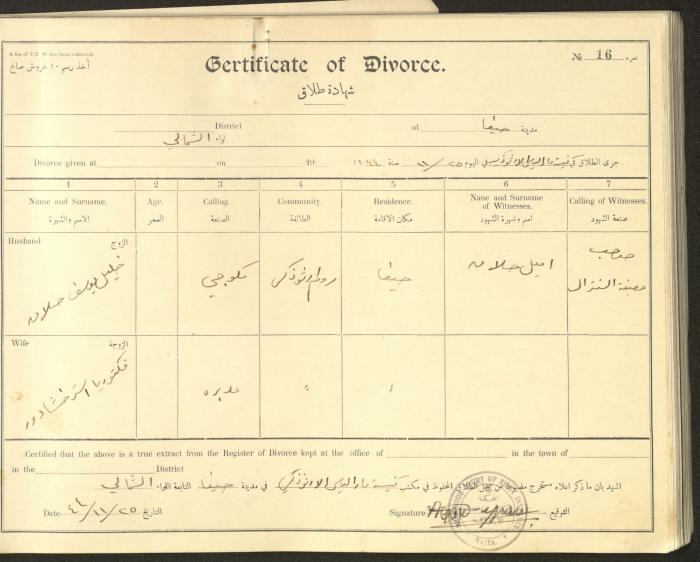 A fee of P.T. 10 has been collected.
أخذ رسم ١٠ غروش صاغ
№ 16 نمرة
Certificate of Divorce.
شهادة طلاق
District at
لواء الشمالي مدينة حيفا
Divorce given at on 19
جرى الطلاق في كنيسة مار الياس الارثوذكس في اليوم ٢٥/١١ سنة ١٩٤٤
1 2 3 4 5 6 7
Name and Surname. Age. Calling. Community. Residence. Name and Surname of Witnesses. Calling of Witnesses.
الاسم والشهرة العمر الصنعة الطائفة مكان الاقامة اسم وشهرة الشهود صنعة الشهود
Husband الزوج
خليل يوسف مكوجي روم ارثوذكس حيفا اميل
صاحب
مصبغة السنترال
Wife الزوجة
فكتوريا مدبره " "
Certified that the above is a true extract from the Register of Divorce kept at the office of in the town of
in the District
اشهد بان ما ذكر اعلاه مستخرج مضبوط من سجل الطلاق المحفوظ في مكتب كنيسة مار الياس الارثوذكس في مدينة حيفا التابعة اللواء الشمالي
Date ٢٥/١١/٤٤ التاريخ Signature التوقيع
Haifa.